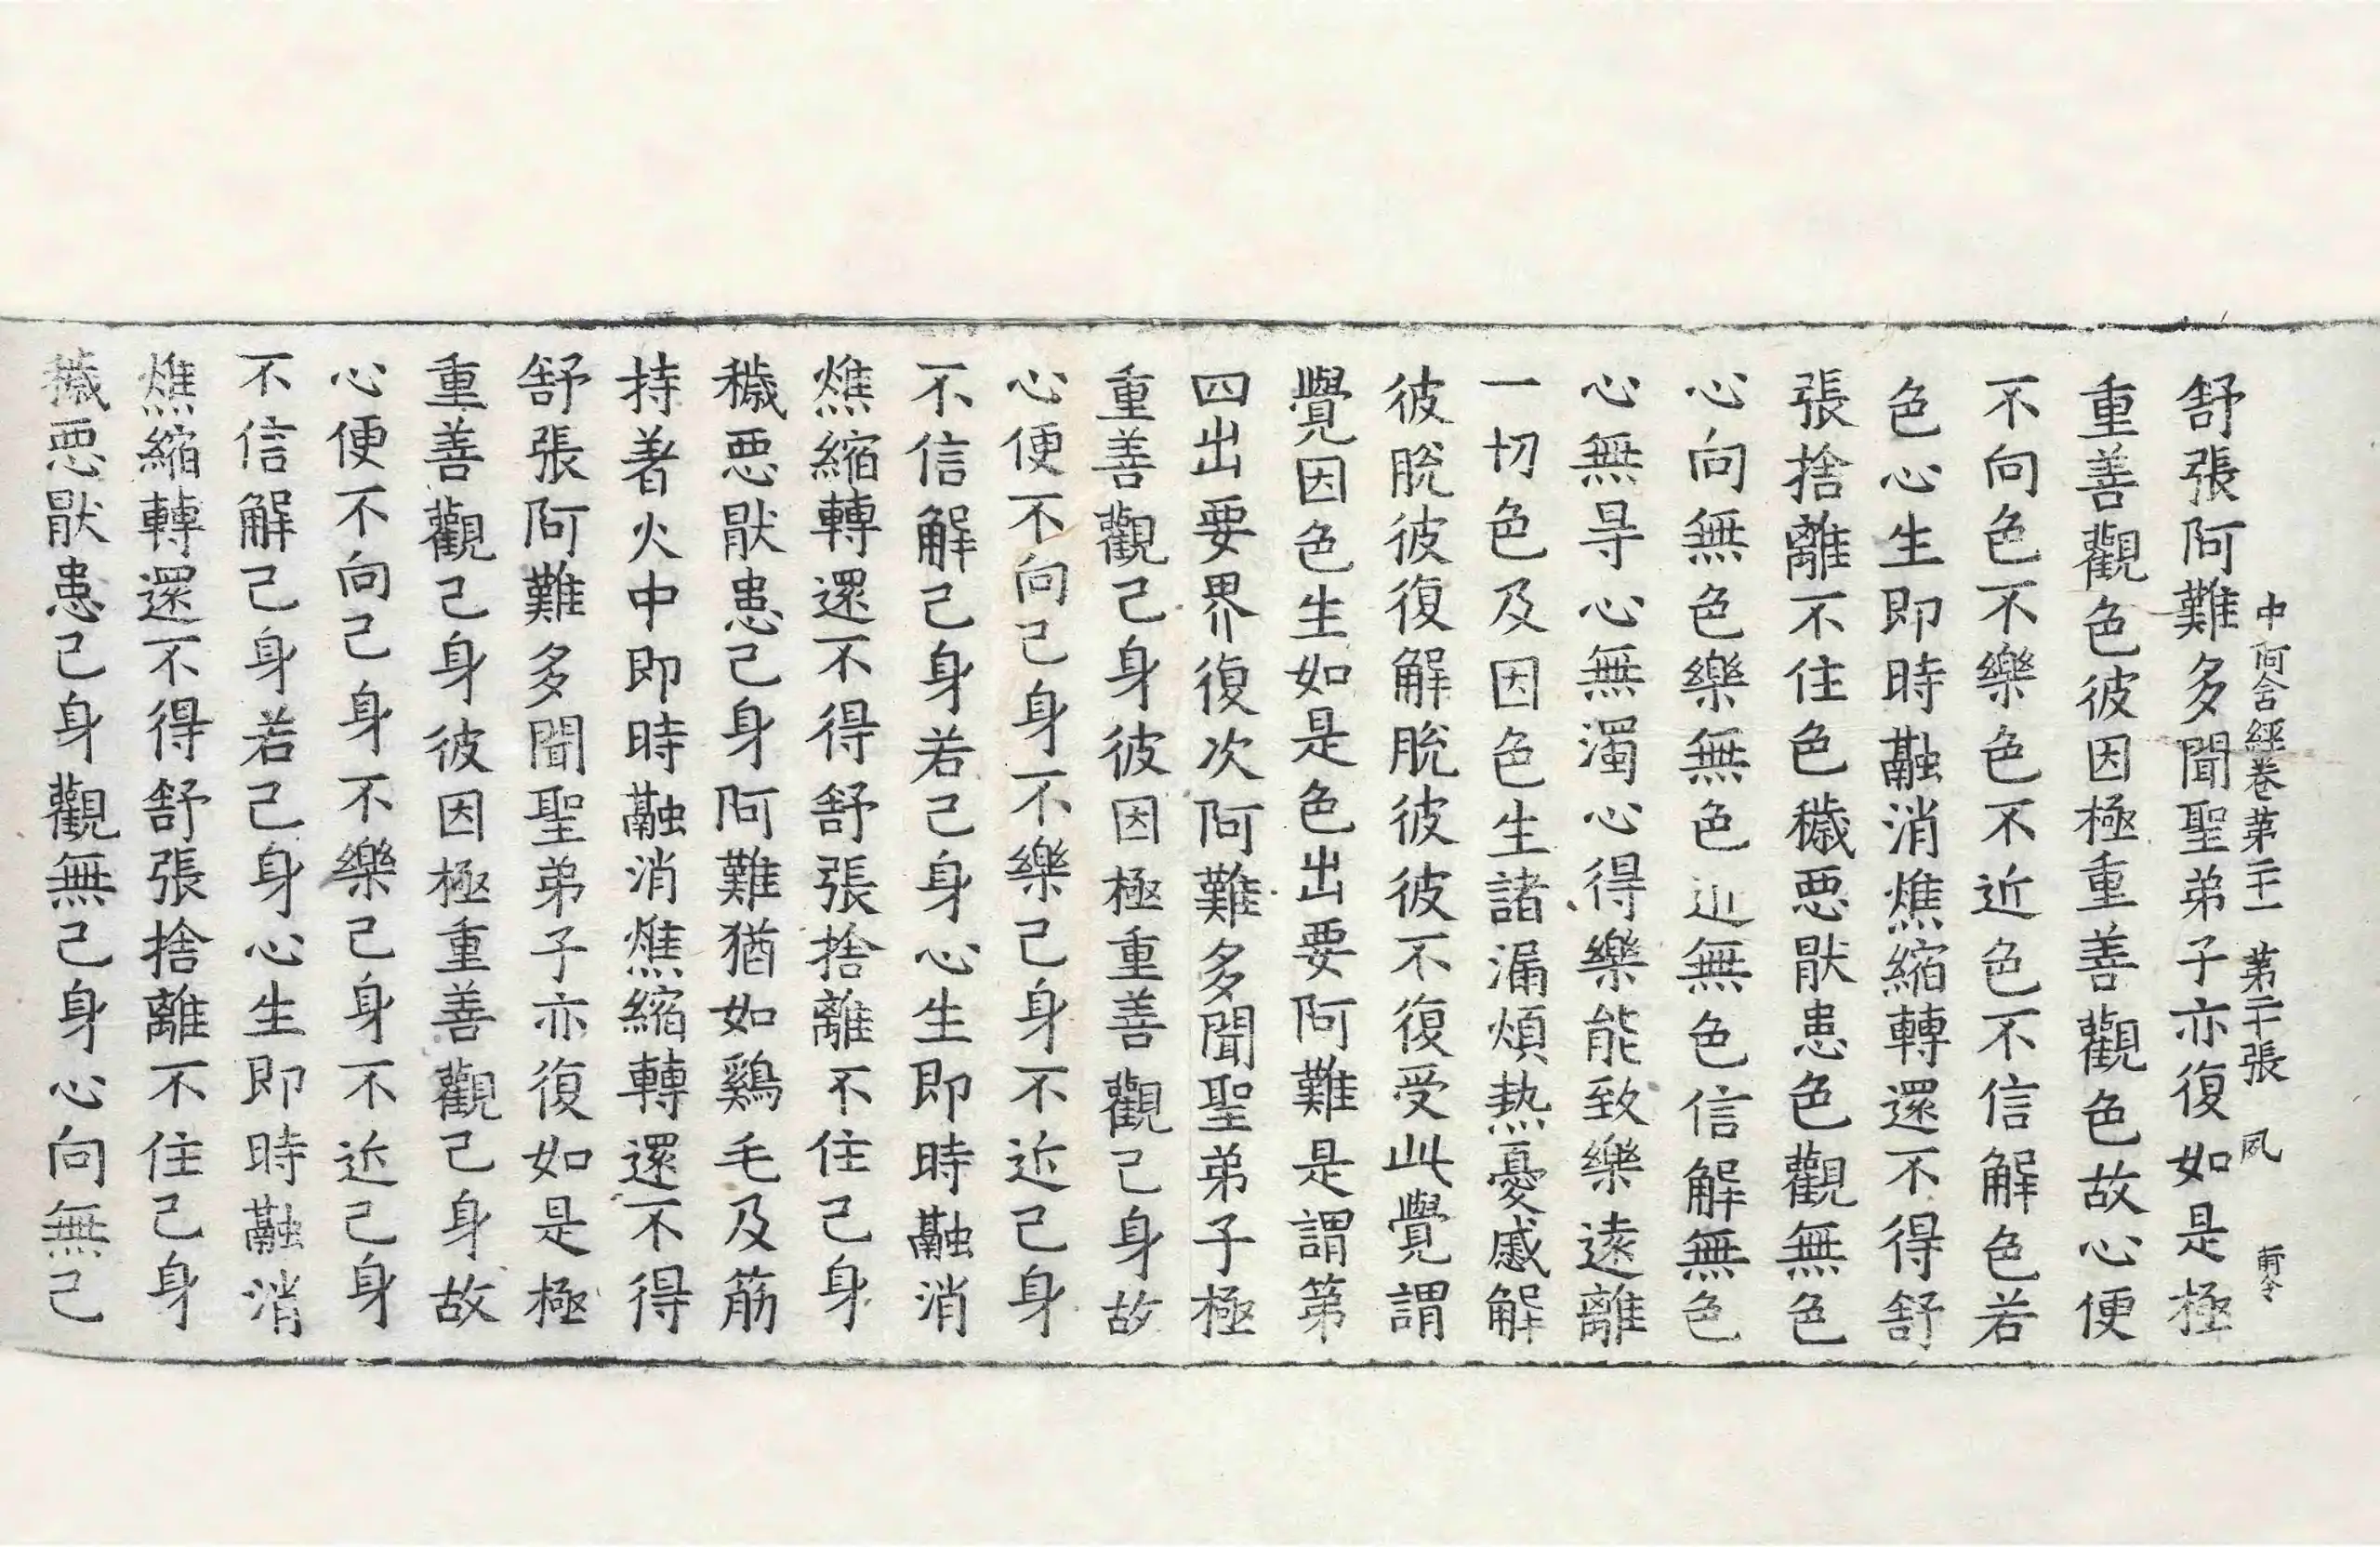 中阿含經卷第二十一　第二十張　夙
舒張阿難多聞聖弟子亦復如是極
重善觀色彼因極重善觀色故心便
不向色不樂色不近色不信解色若
色心生即時融消燋縮轉還不得舒
張捨離不住色穢惡猒患色觀無色
心向無色樂無色近無色信解無色
心無㝵心無濁心得樂能致樂遠離
一切色及因色生諸漏煩热憂慼解
彼脫彼復解脫彼彼不復受此覺謂
覺因色生如是色出要阿難是謂第
四出要界復次阿難多聞聖弟子極
重善觀己身彼因極重善觀己身故
心便不向己身不樂己身不近己身
不信解己身若己身心生即時融消
燋縮轉還不得舒張捨離不住己身
穢惡猒患己身阿難猶如鷄毛及筋
持著火中即時融消燋縮轉還不得
舒張阿難多聞聖弟子亦復如是極
重善觀己身彼因極重善觀己身故
心便不向己身不樂己身不近己身
不信解己身若己身心生即時融消
燋縮轉還不得舒張捨離不住己身
穢惡猒患己身觀無己身心向無己